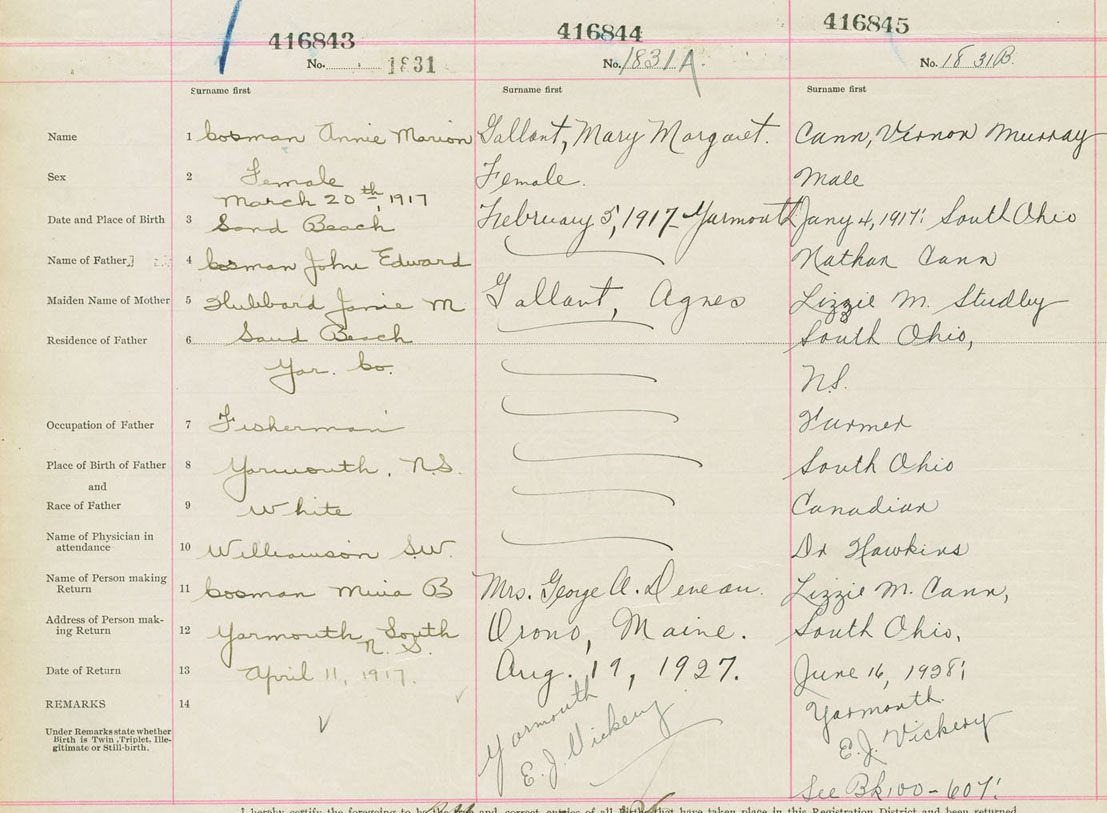 416843 416844 416845
No. 1831 No. 1831A. No. 1831B.
Surname first Surname first Surname first
Name 1 Cosman Annie Marion Gallant, Mary Margaret. Cann, Vernon Murray
Sex 2 Female Female. Male
March 20th, 1917
Date and Place of Birth 3 Sand Beach February 5, 1917 - Yarmouth Jany 4, 1917. South Ohio
Name of Father 4 Cosman John Edward Nathan Cann
Maiden Name of Mother 5 Hubbard Janie M Gallant, Agnes Lizzie M. Studley
Residence of Father 6 Sand Beach South Ohio,
Yar. Co. N.S.
Occupation of Father 7 Fisherman Farmer
Place of Birth of Father 8 Yarmouth, N.S. South Ohio
and
Race of Father 9 White Canadian
Name of Physician in
attendance 10 Williamson S.W. Dr Hawkins
Name of Person making
Return 11 Cosman B Mrs. George A. Deveau. Lizzie M. Cann,
Address of Person mak-
ing Return 12 Yarmouth South Orono, Maine. South Ohio.
N.S.
Date of Return 13 April 11, 1917. Aug. 19, 1927. June 16, 1928.
REMARKS 14 Yarmouth Yarmouth.
Under Remarks state whether
Birth is Twin, Triplet, Ille-
gitimate or Still-birth.
E.J. Vickery E.J. Vickery
See Bk 100 - 607.
I hereby certify the foregoing to be and correct entries of all Births that have taken place in this Registration District and been returned